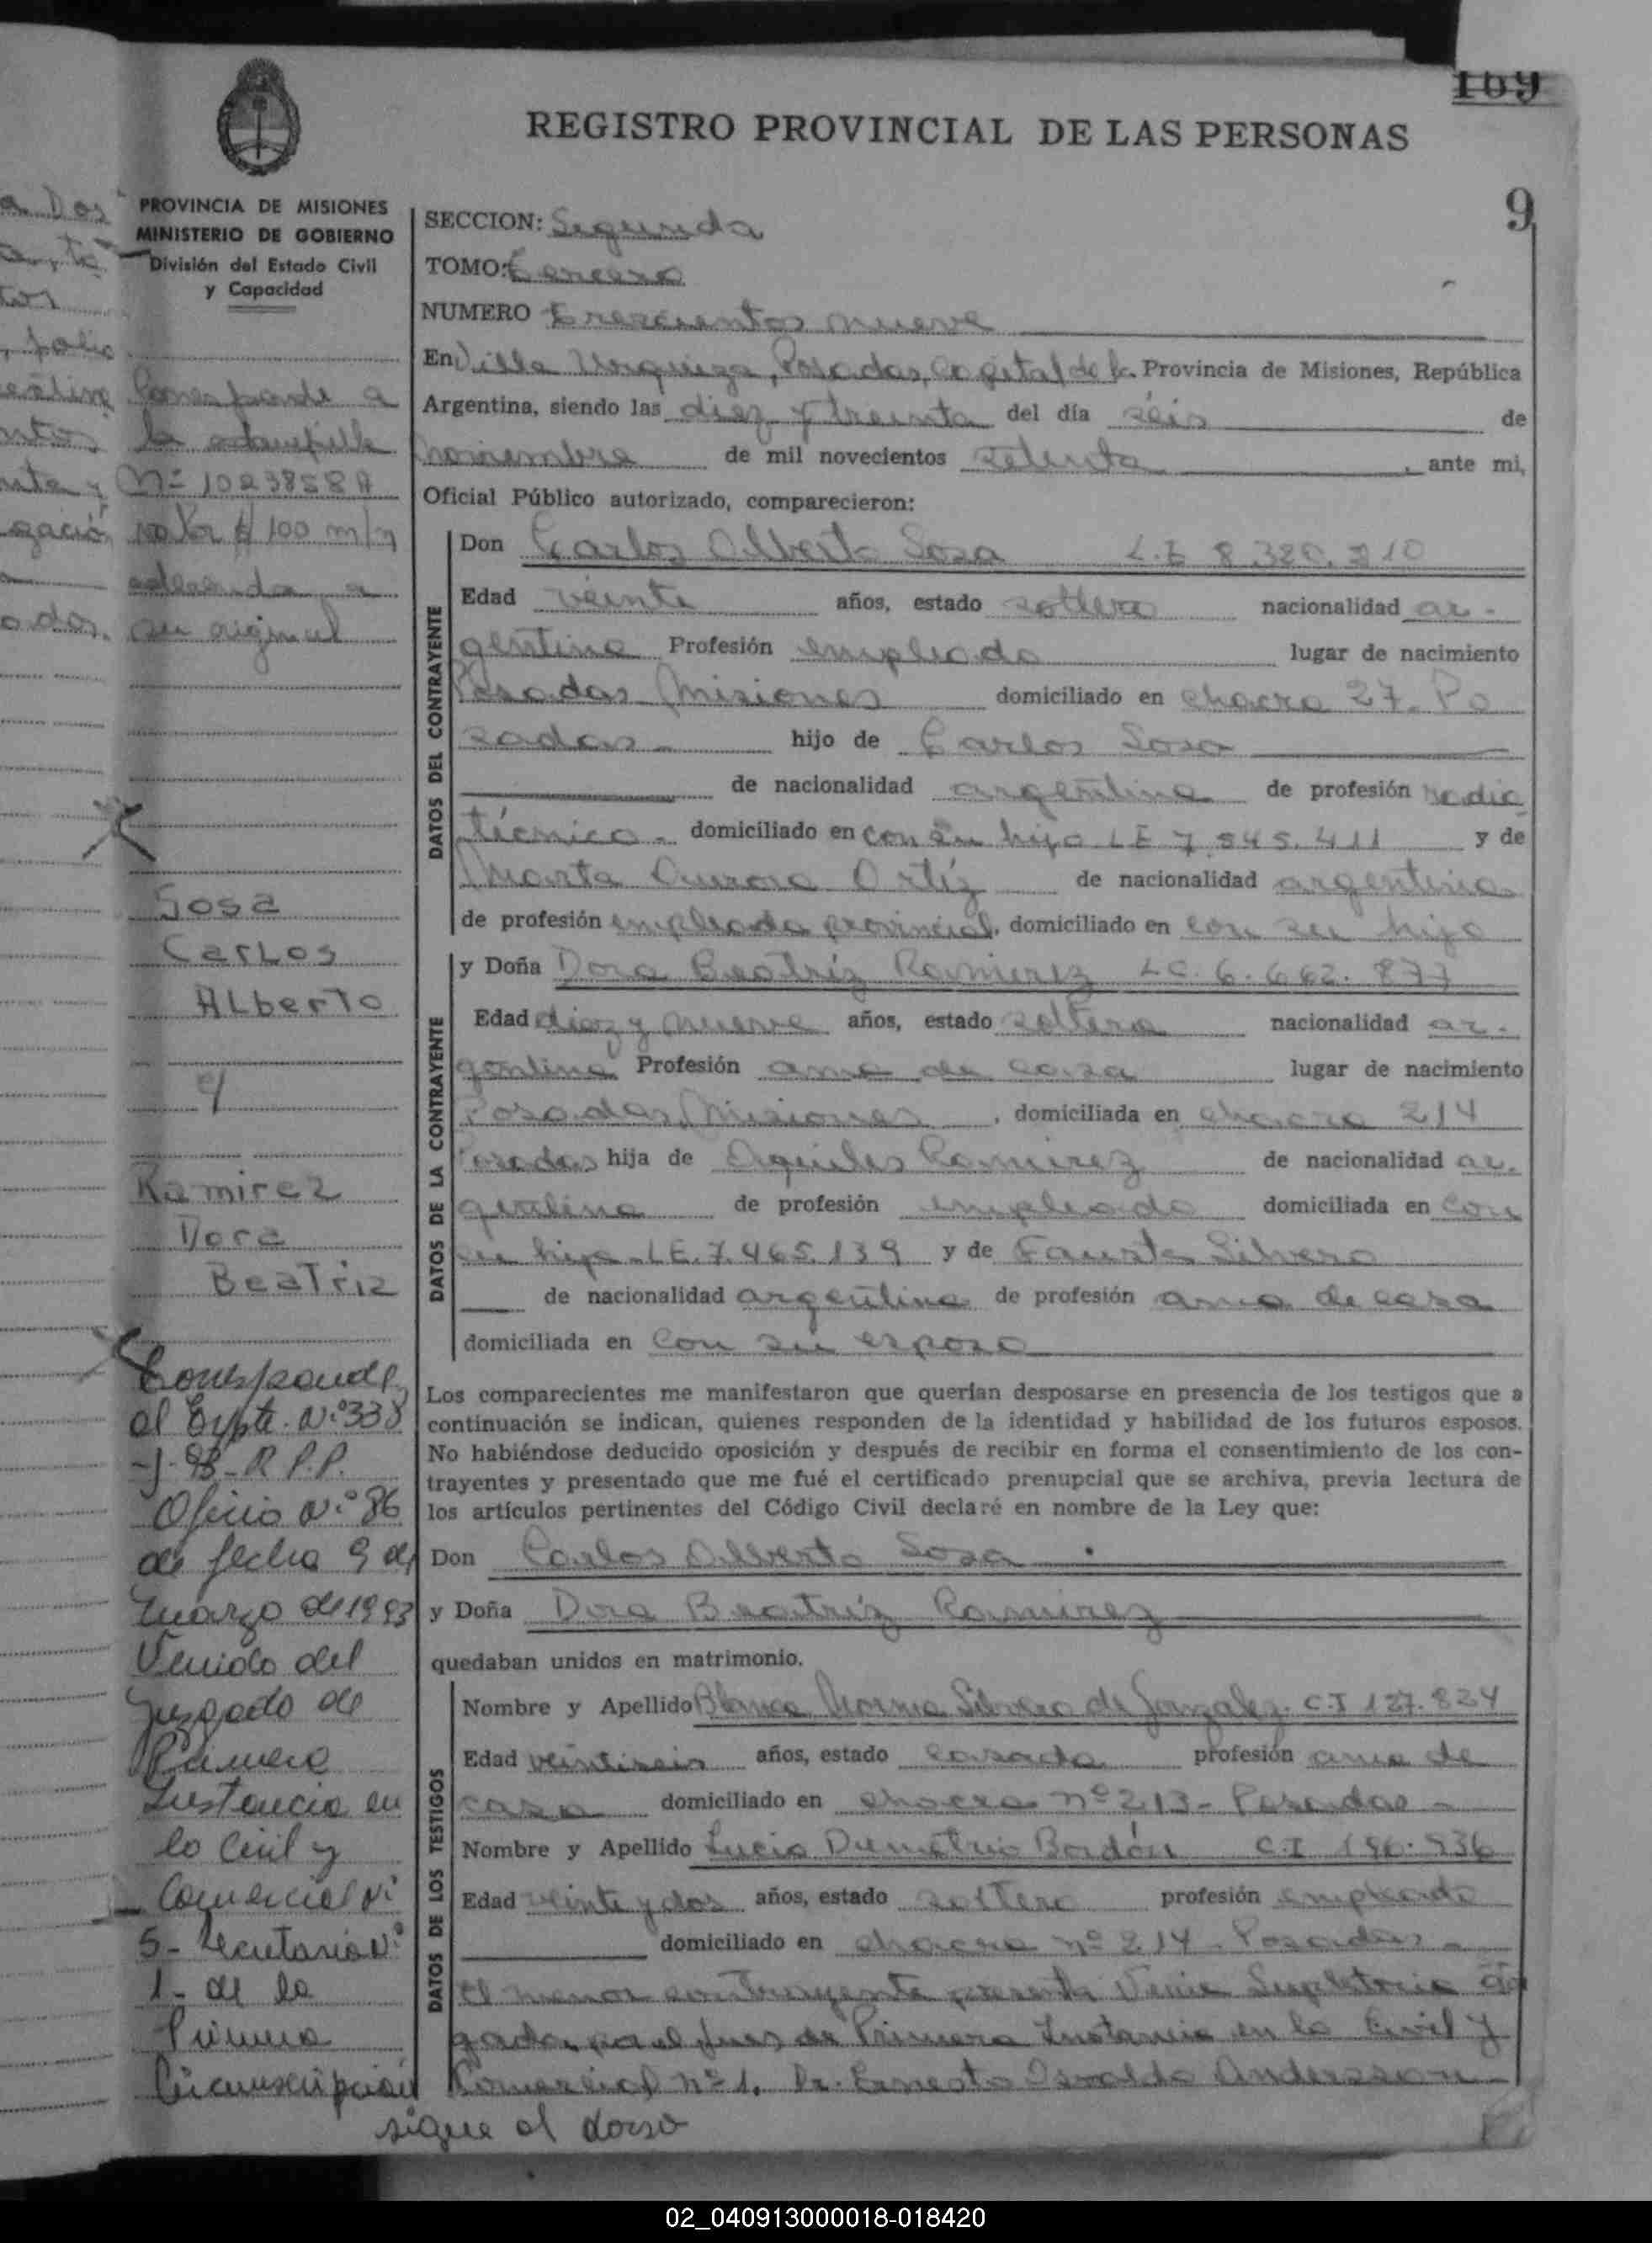 169
REGISTRO PROVINCIAL DE LAS PERSONAS
9
PROVINCIA DE MISIONES
MINISTERIO DE GOBIERNO
División del Estado Civil
y Capacidad
SECCION: Segunda
TOMO: tercero
NUMERO trescientos nueve
En Villa Urquiza, Posadas, Capital de la Provincia de Misiones, República
Argentina, siendo las diez y treinta del día seis de
noviembre de mil novecientos setenta, ante mi,
Oficial Público autorizado, comparecieron:
Corresponde a
la estampilla
Nº 10238588
valor $ 100 m/n
adherida a
su original
DATOS DEL CONTRAYENTE
Don Carlos Alberto Sosa L.E 8.380.210
Edad veinte años, estado soltero nacionalidad ar-
gentina Profesión empleado lugar de nacimiento
Posadas Misiones domiciliado en chacra 27. Po
sadas - hijo de Carlos Sosa
de nacionalidad argentina de profesión radio
técnico - domiciliado en con su hijo LE 7.545.411 y de
Marta Aurora Ortíz de nacionalidad argentina
de profesión empleada provincial, domiciliado en con su hijo
Sosa
Carlos
Alberto
y
Ramirez
Dora
Beatriz
DATOS DE LA CONTRAYENTE
y Doña Dora Beatríz Ramirez LC. 6.662.877
Edad diez y nueve años, estado soltera nacionalidad ar-
gentina Profesión ama de casa lugar de nacimiento
Posadas, Misiones, domiciliada en chacra 214
Posadas hija de Aquiles Ramirez de nacionalidad ar-
gentina de profesión empleado domiciliada en con
su hija - LE. 7.465.139 y de Fausta Silvero
de nacionalidad argentina de profesión ama de casa
domiciliada en con su esposo
Los comparecientes me manifestaron que querían desposarse en presencia de los testigos que a
continuación se indican, quienes responden de la identidad y habilidad de los futuros esposos.
No habiéndose deducido oposición y después de recibir en forma el consentimiento de los con-
trayentes y presentado que me fué el certificado prenupcial que se archiva, previa lectura de
los artículos pertinentes del Código Civil declaré en nombre de la Ley que:
Don Carlos Alberto Sosa
y Doña Dora Beatríz Ramirez
quedaban unidos en matrimonio.
DATOS DE LOS TESTIGOS
Nombre y Apellido Blanca Norma Silvero de Gonzalez. C.I 127.824
Edad veintiseis años, estado casada profesión ama de
casa domiciliado en chacra nº 213 - Posadas -
Nombre y Apellido Lucio Demetrio Bordón C.I 196.936
Edad veinte y dos años, estado soltero profesión empleado
domiciliado en chacra nº 214 - Posadas -
El menor contrayente presenta Venia Supletoria otor
gada por el Juez de Primera Instancia en lo Civil y
Comercial nº 1, Dr. Ernesto Osvaldo Anderson -
Corresponde
al Expte. Nº 338
-J-93-R.P.P.
Oficio Nº 86
de fecha 9 de
marzo de 1993
Venido del
Juzgado de
Primera
Instancia en
lo Civil y
Comercial Nº
5- Secretaria Nº
1- de la
Primera
Circunscripción
sigue al dorso
02_040913000018-018420